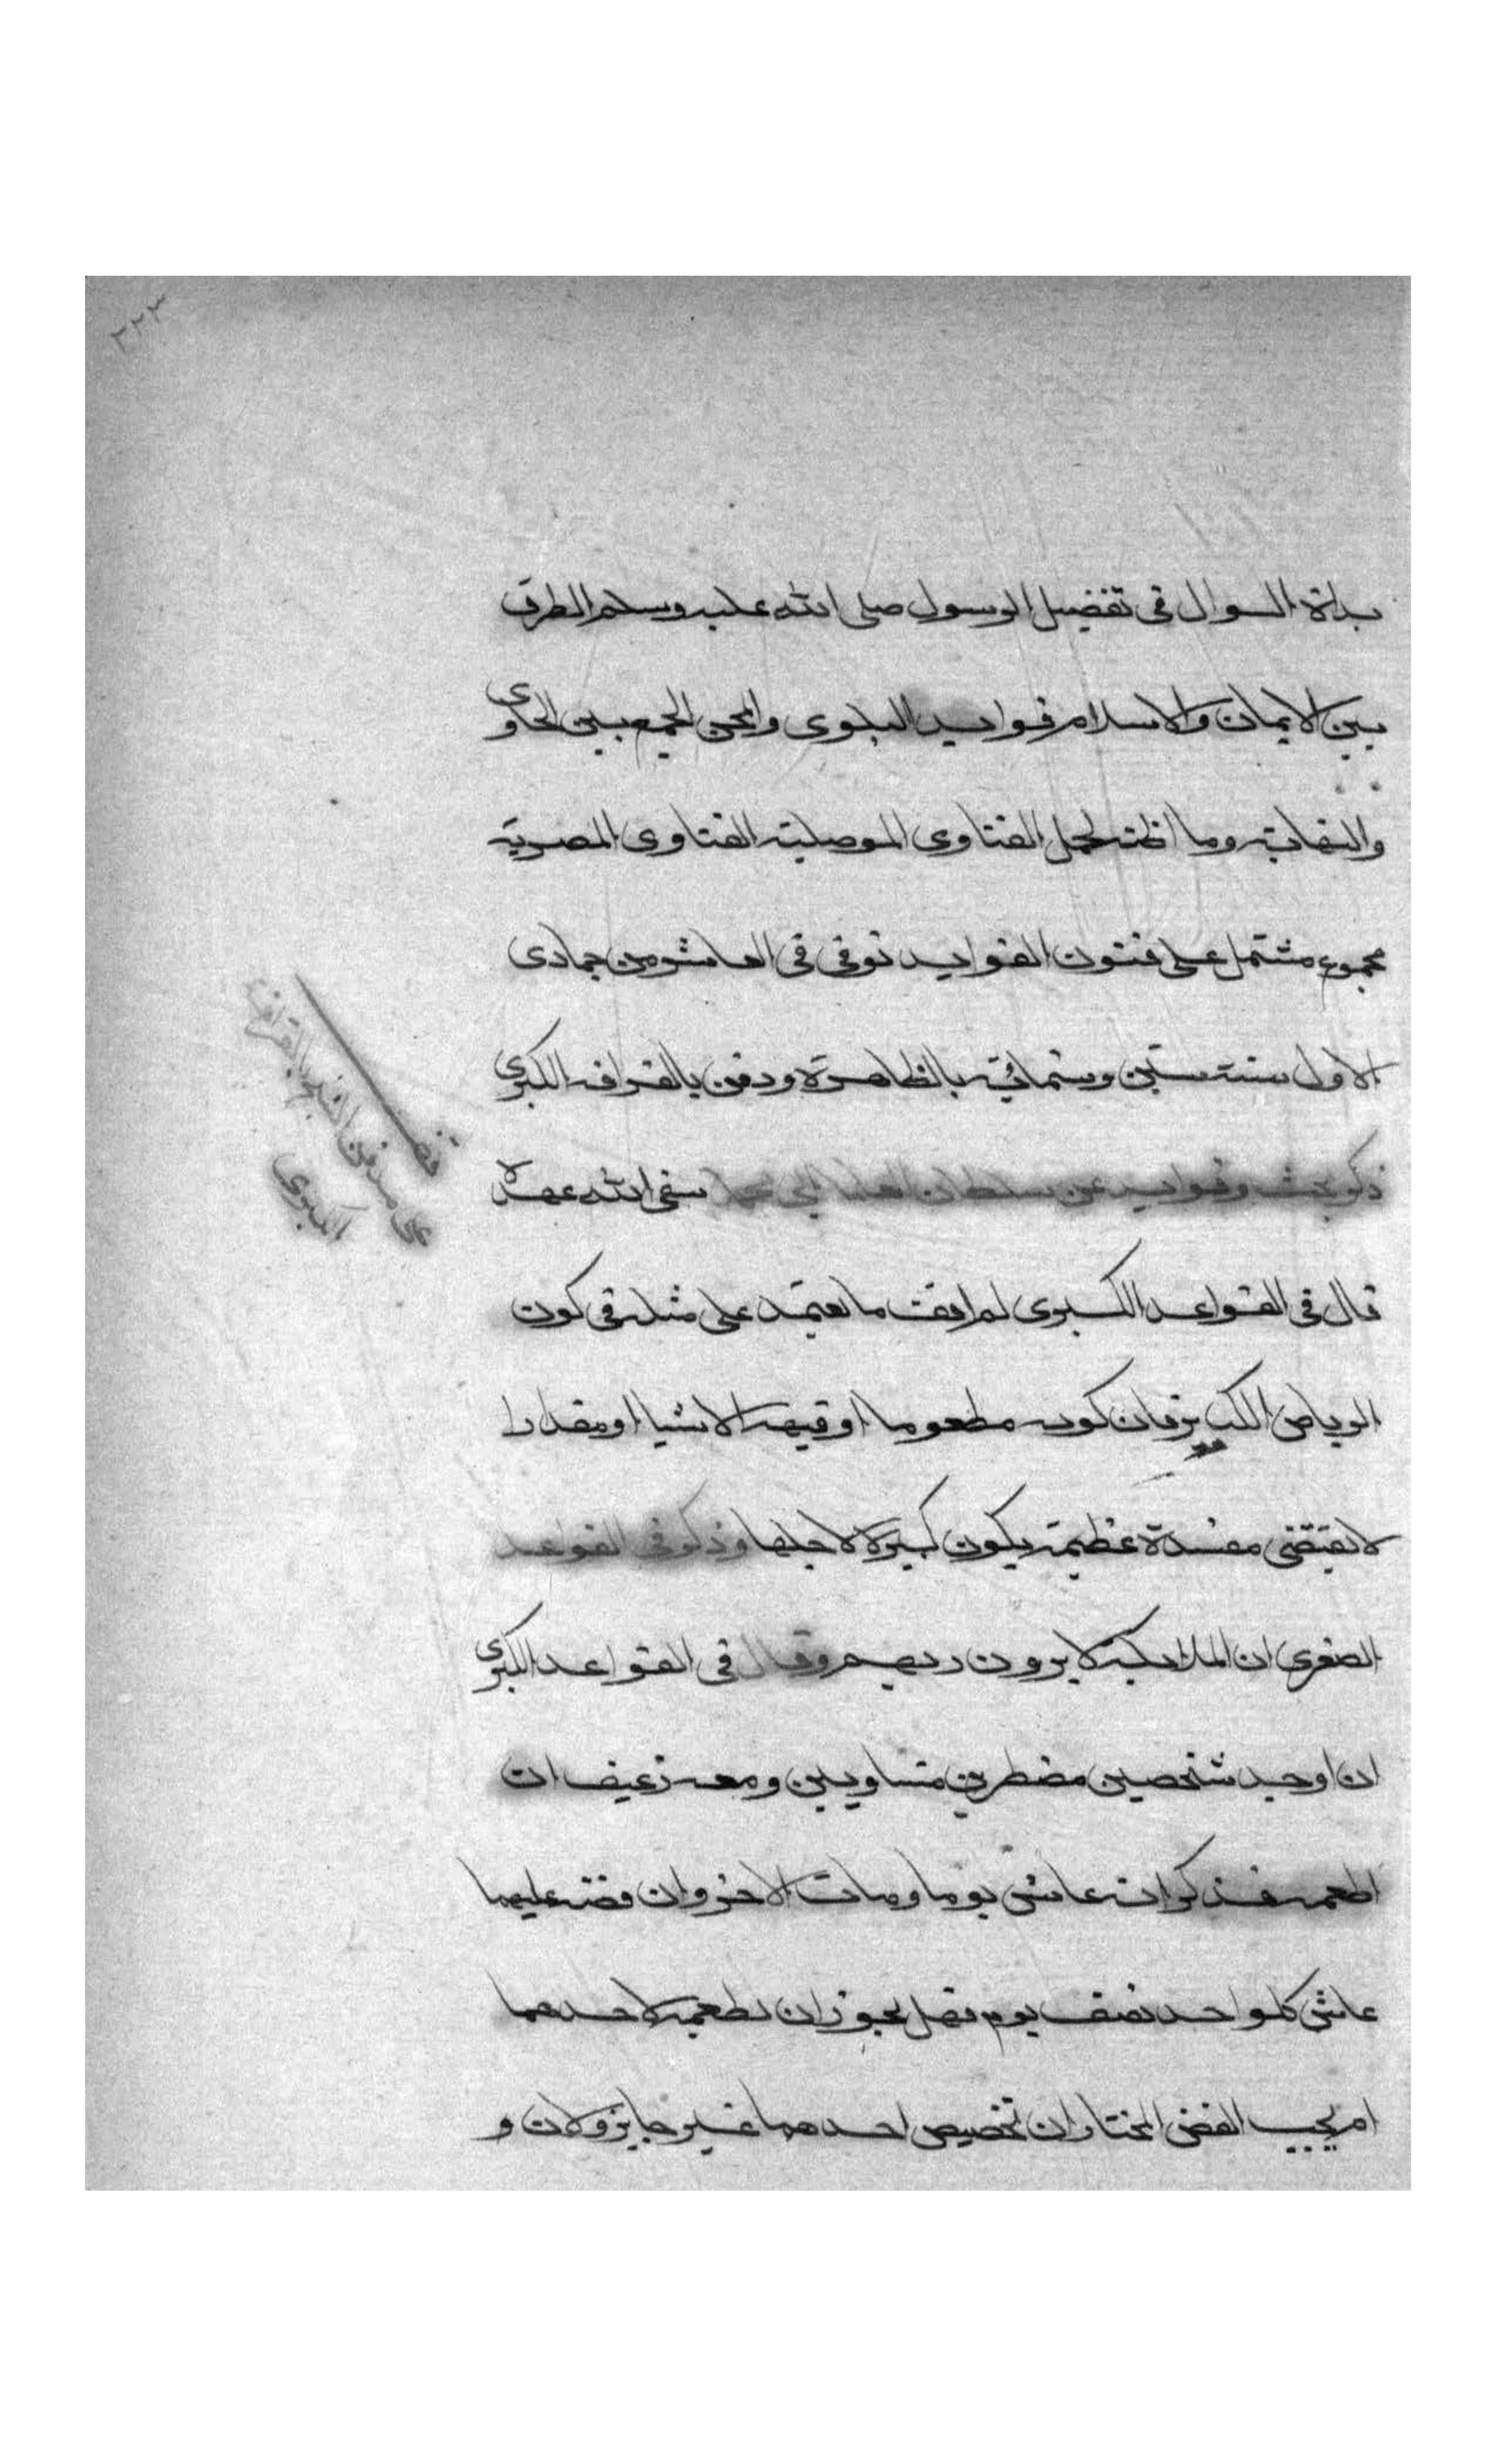 ٢٢٣
بداة السوال فى تفضيل الرسول صلى الله عليه وسلم الطرق
بين الايمان والاسلام فوايد البلوى والمحن الجمع بين الحاوى
والنهاية وما اظنه لحمل الفتاوى الموصلية الفتاوى المصرية
مجموع مشتمل على فنون الفوايد توفى فى العاشر من جمادى
الاول سنة ستين وستمائة بالظاهرة ودفن بالقرافة الكبرى
ذكر بحث وفوايد عن سلطان العلما سقى الله عهده
قال فى القواعد الكبرى لم اقف ما يعتمد على مثله فى كون
الربا من الكبـ يرفان كونه مطعوما اوقيمة الاشيا اومقدارا
لا يقتضى مفسدة عظيمة يكون كبيرة لاجلها وذكر فى القواعد
الصغرى ان الملايكة لا يرون ربهم وقال فى القواعد الكبرى
ان اوجد شخصين مضطرين متساويين ومعه رغيف ان
اطعمه فذكر انه عاش يوما ومات الاخر وان فضه عليهما
عاش كلواحد نصف يوم فهل يجوز ان يطعمه لاحدهما
ام يجب الفض المختار ان تخصيص احدهما غير جايز ولان و
قف
على مدفن الشيخ بالقرافة
الكبرى